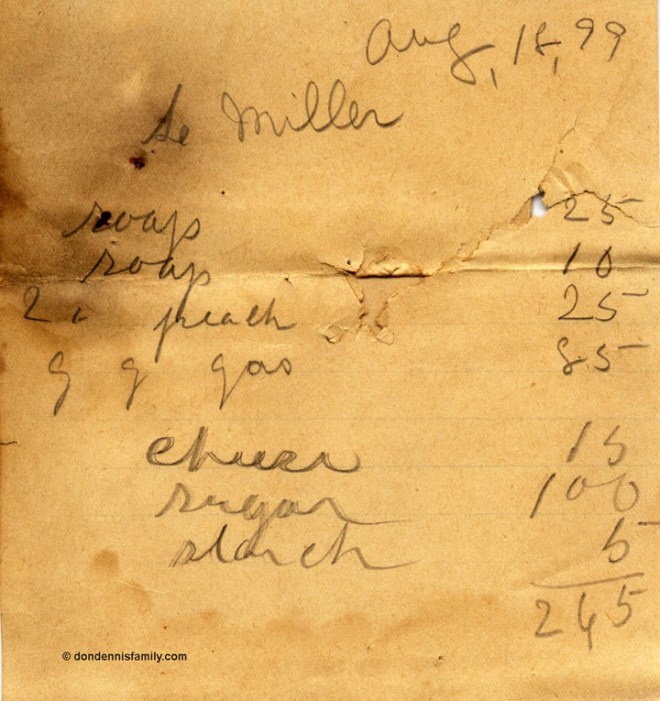 Aug, 18, 99
Miller
soap 25
soap 10
2 peach 25
g gas 85
cheese 15
sugar 100
starch 5
265
© dondennisfamily.com